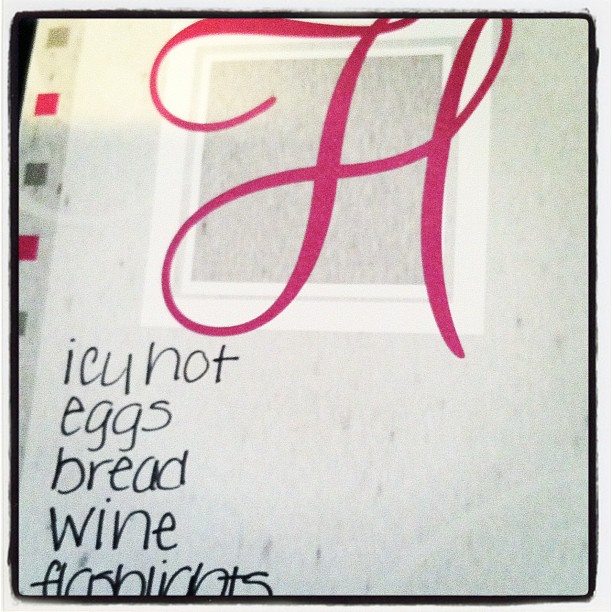 H
icy hot
eggs
bread
wine
flashlights